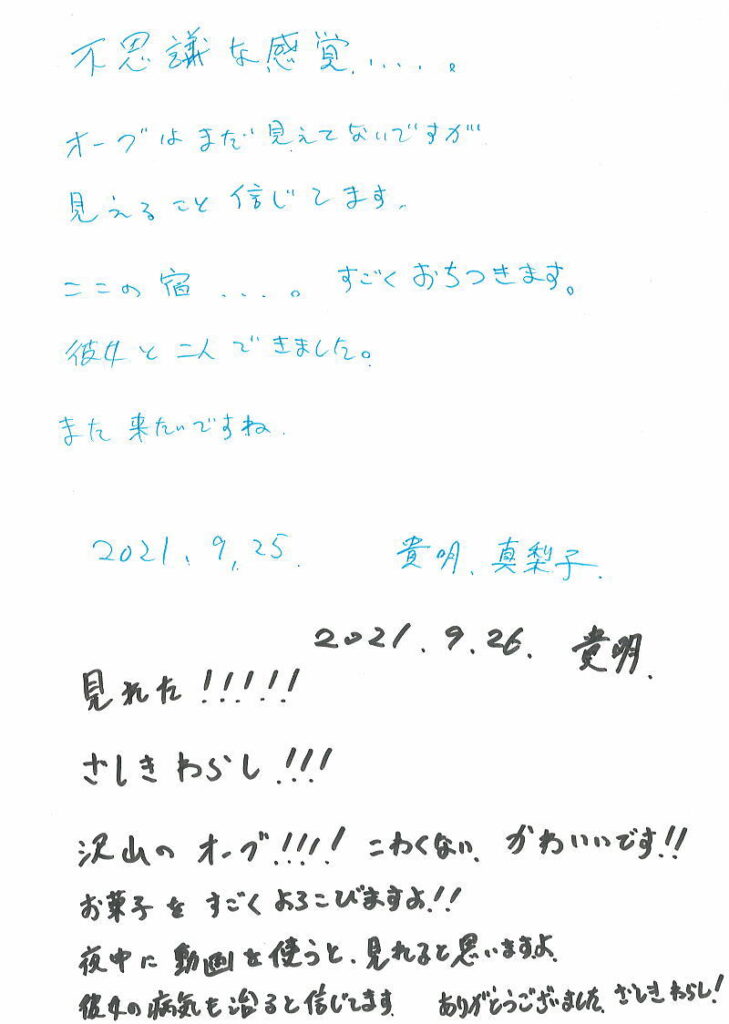 不思議な感覚.....。
オーブはまだ見えてないですが
見えること信じてます.
ここの宿....。すごくおちつきます。
彼女と二人できました。
また来たいですね.
2021.9.25. 貴明.真梨子.
2021.9.26. 貴明.
見れた!!!!!
ざしきわらし!!!
沢山のオーブ!!!! こわくない、かわいいです!!
お菓子をすごくよろこびますよ!!
夜中に動画を使うと、見れると思いますよ.
彼女の病気も治ると信じてます ありがとうございました.ざしきわらし!